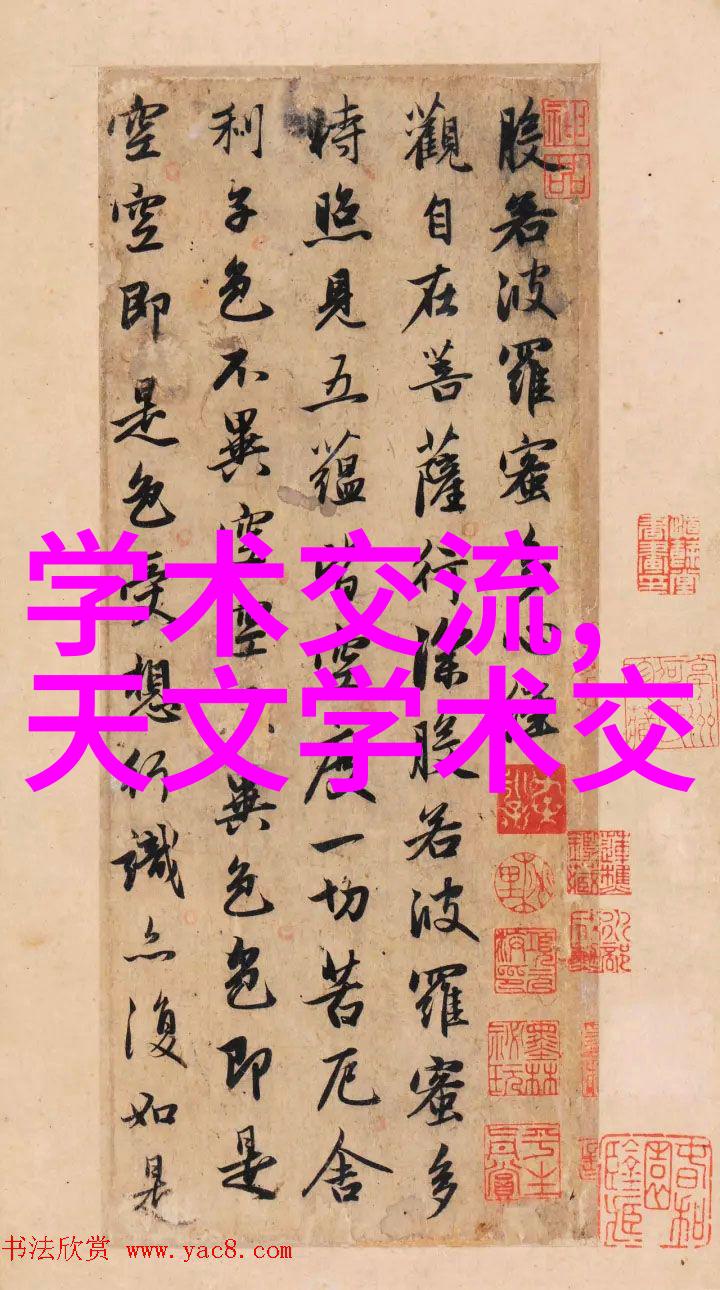 神品
般若波羅蜜多心經
觀自在菩薩行深般若波羅蜜多
時照見五蘊皆空度一切苦厄舍
利子色不異空空不異色色即是
空空即是色受想行識亦復如是
学术交流,
天文学术交
墨林祕玩
书法欣赏 www.yac8.com